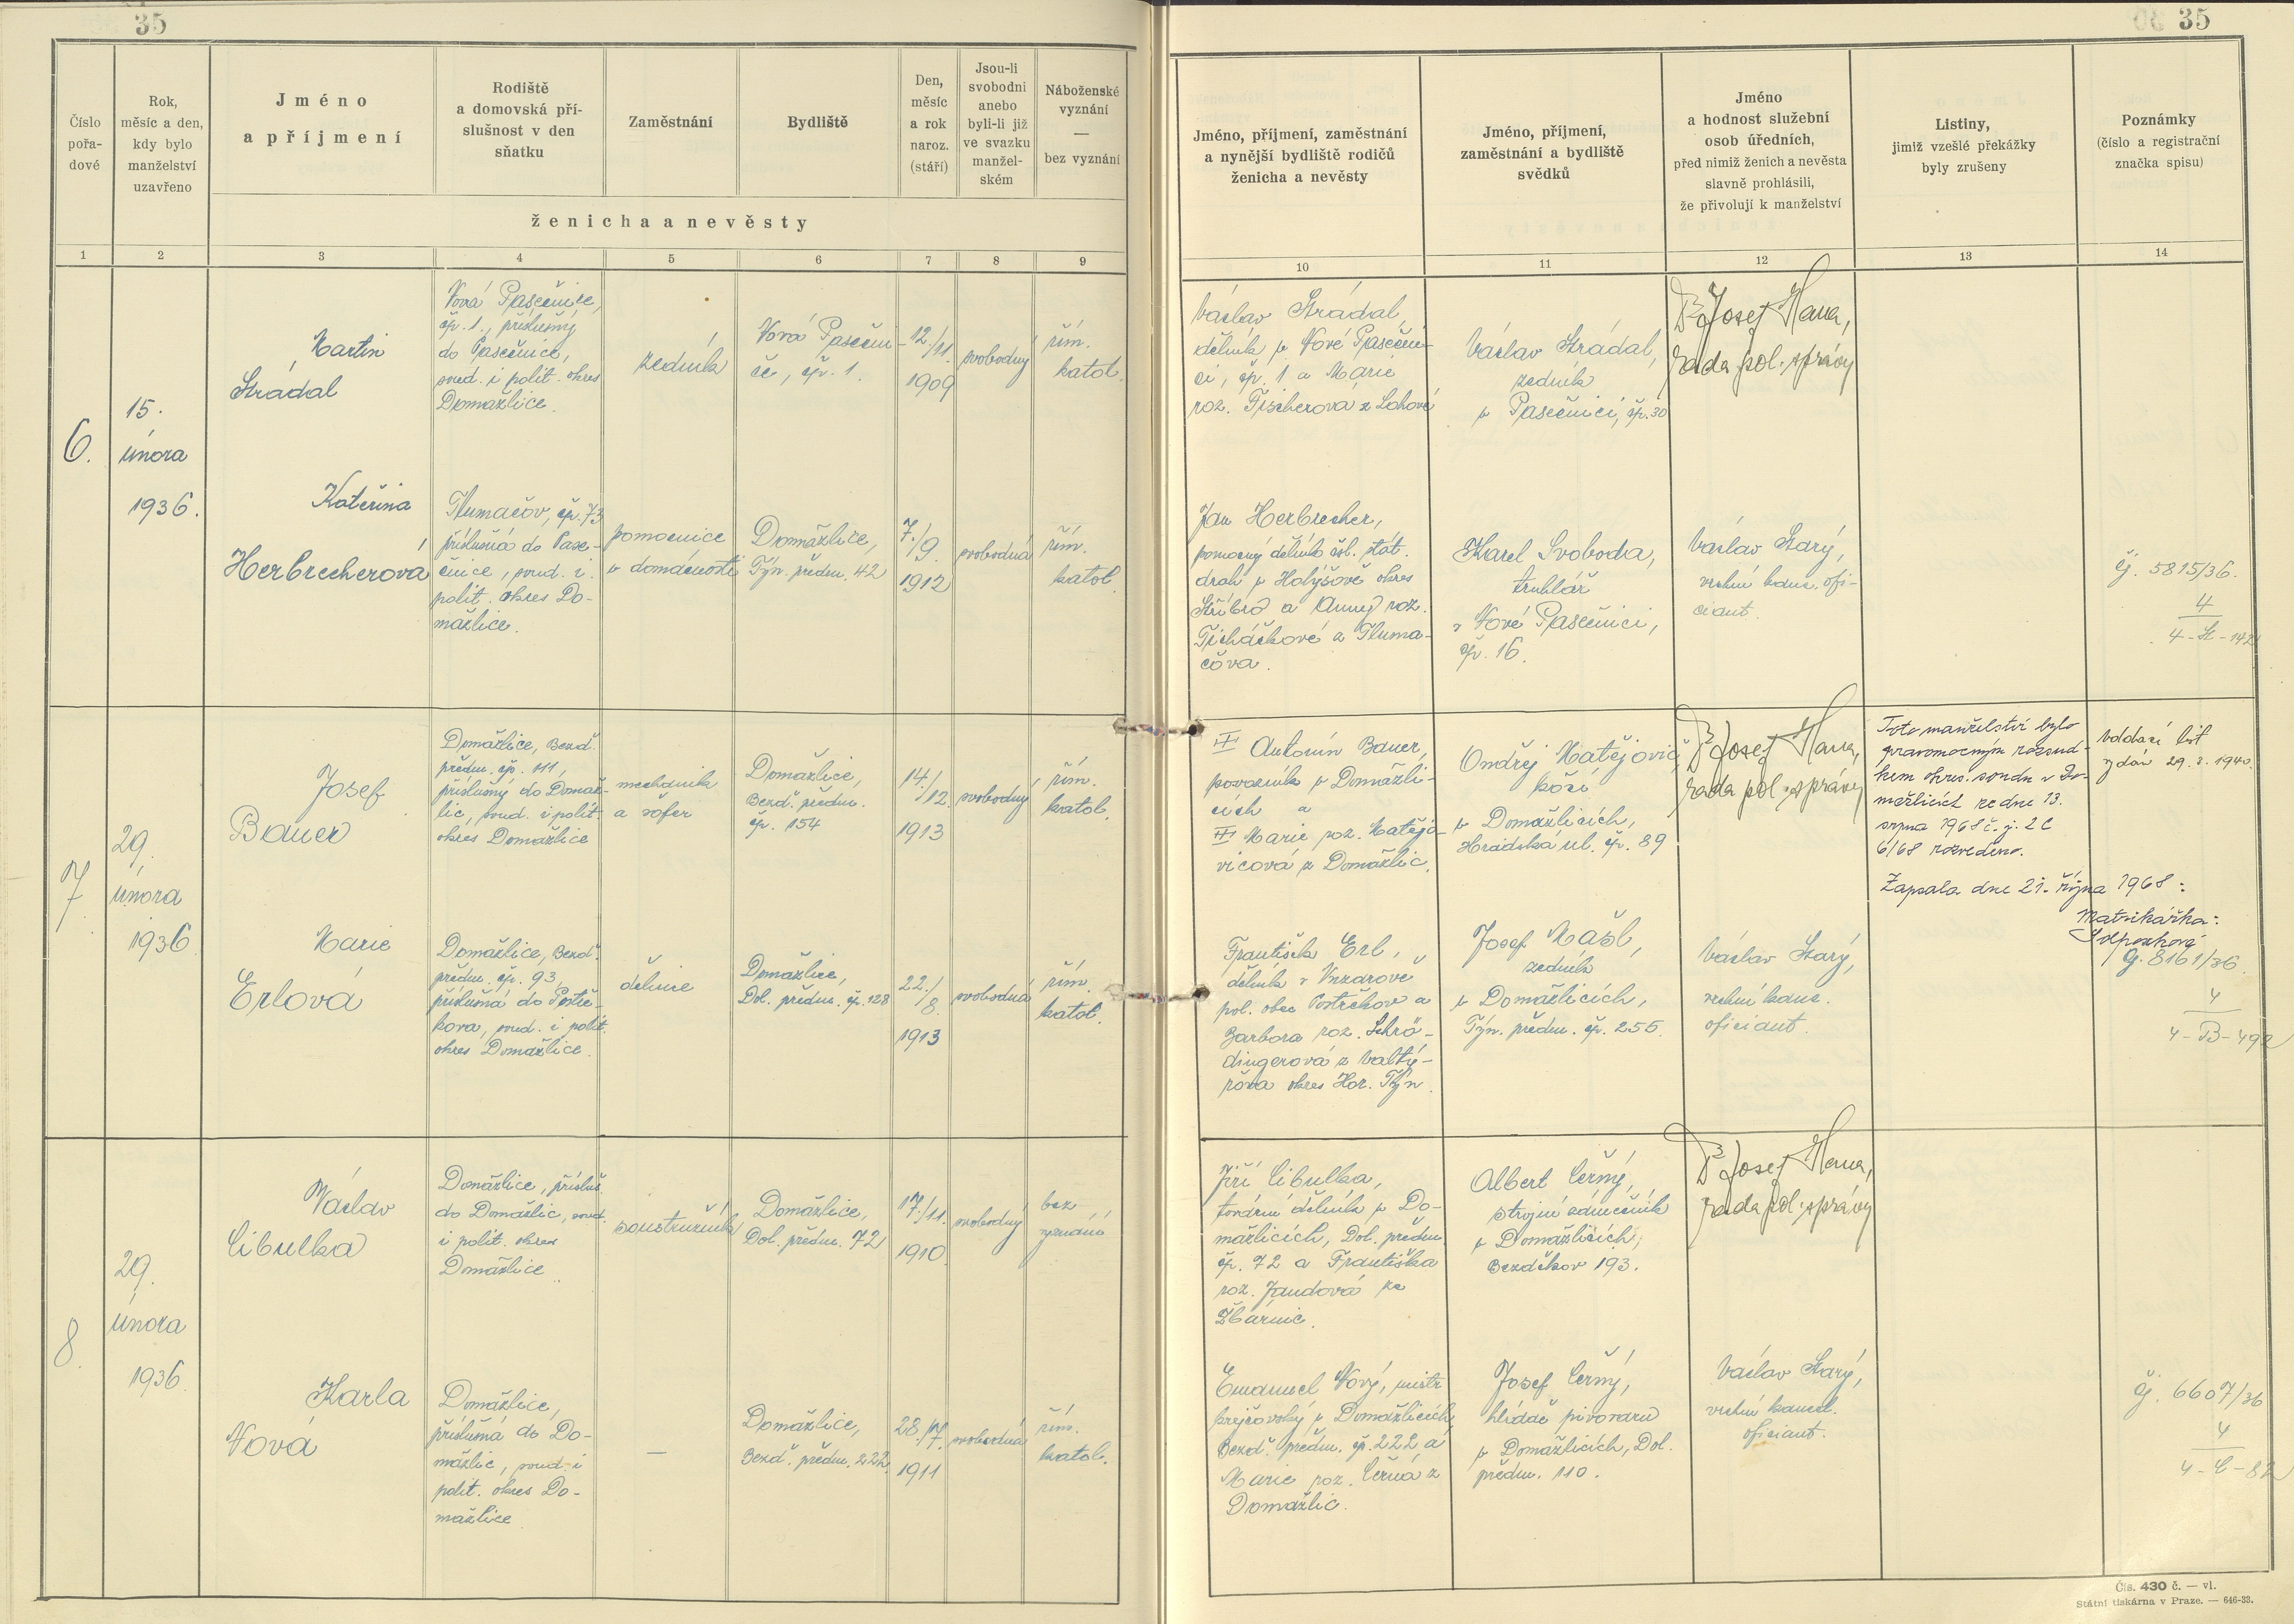 35
35
Číslo
pořa-
dové
Rok,
měsíc a den,
kdy bylo
manželství
uzavřeno
Jméno
a příjmení
Rodiště
a domovská pří-
slušnost v den
sňatku
Zaměstnání
Bydliště
Den,
měsíc
a rok
naroz.
(stáří)
Jsou-li
svobodni
anebo
byli-li již
ve svazku
manžel-
ském
Náboženské
vyznání
—
bez vyznání
ženicha a nevěsty
Jméno, příjmení, zaměstnání
a nynější bydliště rodičů
ženicha a nevěsty
Jméno, příjmení,
zaměstnání a bydliště
svědků
Jméno
a hodnost služební
osob úředních,
před nimiž ženich a nevěsta
slavně prohlásili,
že přivolují k manželství
Listiny,
jimiž vzešlé překážky
byly zrušeny
Poznámky
(číslo a registrační
značka spisu)
1 2 3 4 5 6 7 8 9 10 11 12 13 14
6.
15.
února
1936.
Martin
Strádal
Nová Pasečnice,
čp. 1., příslušný
do Pasečnice,
soud. i polit. okres
Domažlice.
zedník
Nová Pasečni-
ce, čp. 1.
12./11.
1909
svobodný
řím.
katol.
Václav Strádal,
dělník v Nové Pasečni-
ci, čp. 1 a Marie
roz. Fischerová z Lohové
Václav Strádal,
zedník
v Pasečnici, čp. 30
Dr Josef Hana,
rada pol. správy
Kateřina
Herbrecherová
Tlumačov, čp. 73
příslušná do Pase-
čnice, soud. i
polit. okres Do-
mažlice.
pomocnice
v domácnosti
Domažlice,
Týn. předm. 42
7./9.
1912
svobodná
řím.
katol.
Jan Herbrecher,
pomocný dělník čsl. stát.
drah v Holýšově okres
Stříbro a Anny roz.
Ticháčkové z Tluma-
čova.
Karel Svoboda,
truhlář
v Nové Pasečnici,
čp. 16.
Václav Starý,
vrchní kanc. ofi-
ciant.
čj. 5815/36.
4
4-St-142
7
29.
února
1936
Josef
Bauer
Domažlice, Bezd.
předm. čp. 111,
příslušný do Domaž-
lic, soud. i polit.
okres Domažlice
mechanik
a šofer
Domažlice,
Bezd. předm.
čp. 154
14./12.
1913
svobodný
řím.
katol.
Antonín Bauer,
provazník v Domažli-
cích a
Marie roz. Matějo-
vicová z Domažlic.
Ondřej Matějovič
kočí
v Domažlicích,
Hradská ul. čp. 89
Dr Josef Hana,
rada pol. správy
Toto manželství bylo
pravomocným rozsud-
kem okres. soudu v Do-
mažlicích ze dne 13.
srpna 1968 č. j. 2 C
6/68 rozvedeno.
Zapsala dne 21. října 1968:
Matrikářka:
Oddací list
vydán 29.8.1940.
Marie
Erlová
Domažlice, Bezd.
předm. čp. 93,
příslušná do Postře-
kova, soud. i polit.
okres Domažlice.
dělnice
Domažlice,
Dol. předm. čp. 128
22./8.
1913
svobodná
řím.
katol.
František Erl,
dělník v
pol. obec Postřekov a
Barbora roz. Schrö-
dingerová z Valtý-
řova okres Hor. Týn.
Josef Mašl,
zedník
v Domažlicích,
Týn. předm. čp. 255.
Václav Starý,
vrchní kanc.
oficiant.
čj. 8161/36.
4
4-B-492
8.
29.
února
1936.
Václav
Cibulka
Domažlice, přísluš.
do Domažlic, soud.
i polit. okres
Domažlice.
soustružník
Domažlice,
Dol. předm. 72
17./11.
1910.
svobodný
bez
vyznání
Jiří Cibulka,
tovární dělník v Do-
mažlicích, Dol. předm.
čp. 72 a Františka
roz. Jandová ze
Albert Černý,
strojní zámečník
v Domažlicích,
Bezděkov 193.
Dr Josef Hana,
rada pol. správy
Karla
Nová
Domažlice,
příslušná do Do-
mažlic, soud. i
polit. okres Do-
mažlice
—
Domažlice,
Bezd. předm. 222.
28./7.
1911
svobodná
řím.
katol.
Emanuel Nový, mistr
krejčovský v Domažlicích,
Bezd. předm. čp. 222 a
Marie roz. Černá z
Domažlic.
Josef Černý,
hlídač pivovaru
v Domažlicích, Dol.
předm. 110.
Václav Starý,
vrchní kancel.
oficiant.
čj. 6607/36
4
4-C-82
Čís. 430 č. — vl.
Státní tiskárna v Praze. — 646-33.